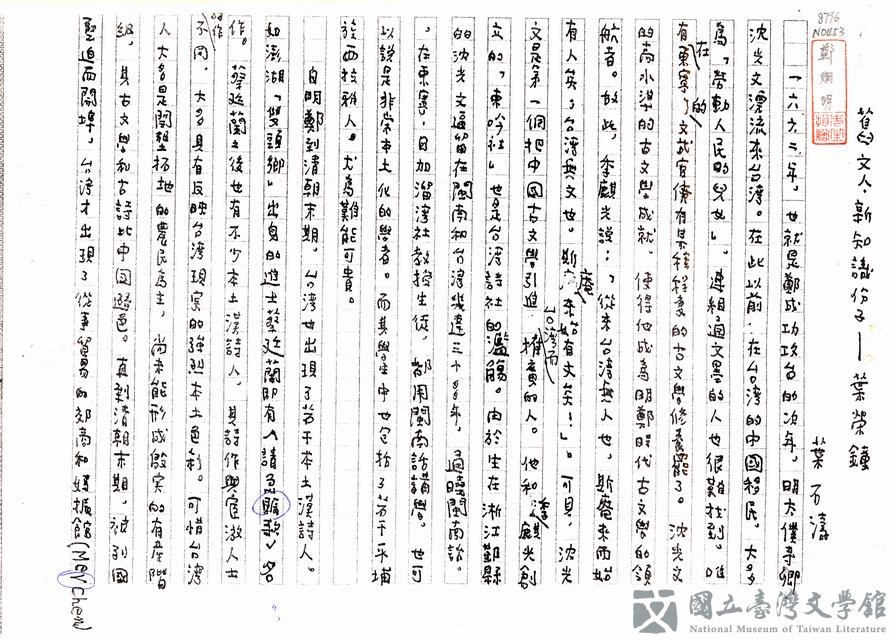 8796
N0453
鄭烱明
舊文人・新知識份子——葉榮鐘
葉石濤
一六六二年,也就是鄭成功攻台的次年,明太僕寺卿
沈光文漂流來台灣。在此以前,在台灣的中國移民,大多
為「勞動人民的兒女」,連粗通文墨的人也很難找到。唯
有在東寧的文武官僚有某種程度的古文學修養罷了。沈光文
的高水準的古文學成就,使得他成為明鄭時代古文學的領
航者。故此,季麒光說:「從來台灣無人也,斯庵來而始
有人矣;台灣無文也,斯庵來始有文矣!」。可見,沈光
文是第一個把中國古文學引進台灣而推廣的人。他和季麒光創
立的「東吟社」也是台灣詩社的濫觴。由於生在浙江鄞縣
的沈光文逗留在閩南和台灣幾達三十多年,通曉閩南話
,在東寧,目加溜灣社教授生徒,都用閩南話講學,也可
以說是非常本土化的學者。而其學生中也包括了若干平埔
族西拉雅人,尤為難能可貴。
自明鄭到清朝末期,台灣也出現了若干本土漢詩人。
如澎湖「雙頭鄉」出身的進士蔡廷蘭即有〈請急賑歌〉名
作。蔡廷蘭之後也有不少本土漢詩人,其詩作與宦遊人士
詩作不同,大多具有反映台灣現實的強烈本土色彩。可惜台灣
人大多是開墾拓地的農民為主,尚未能形成殷實的有產階
級,其古文學和古詩比中國遜色。直到清朝末期,被列國
壓迫而開埠,台灣才出現了從事貿易的郊商和媽振館(Merchant)
國立臺灣文學館
National Museum of Taiwan Literature